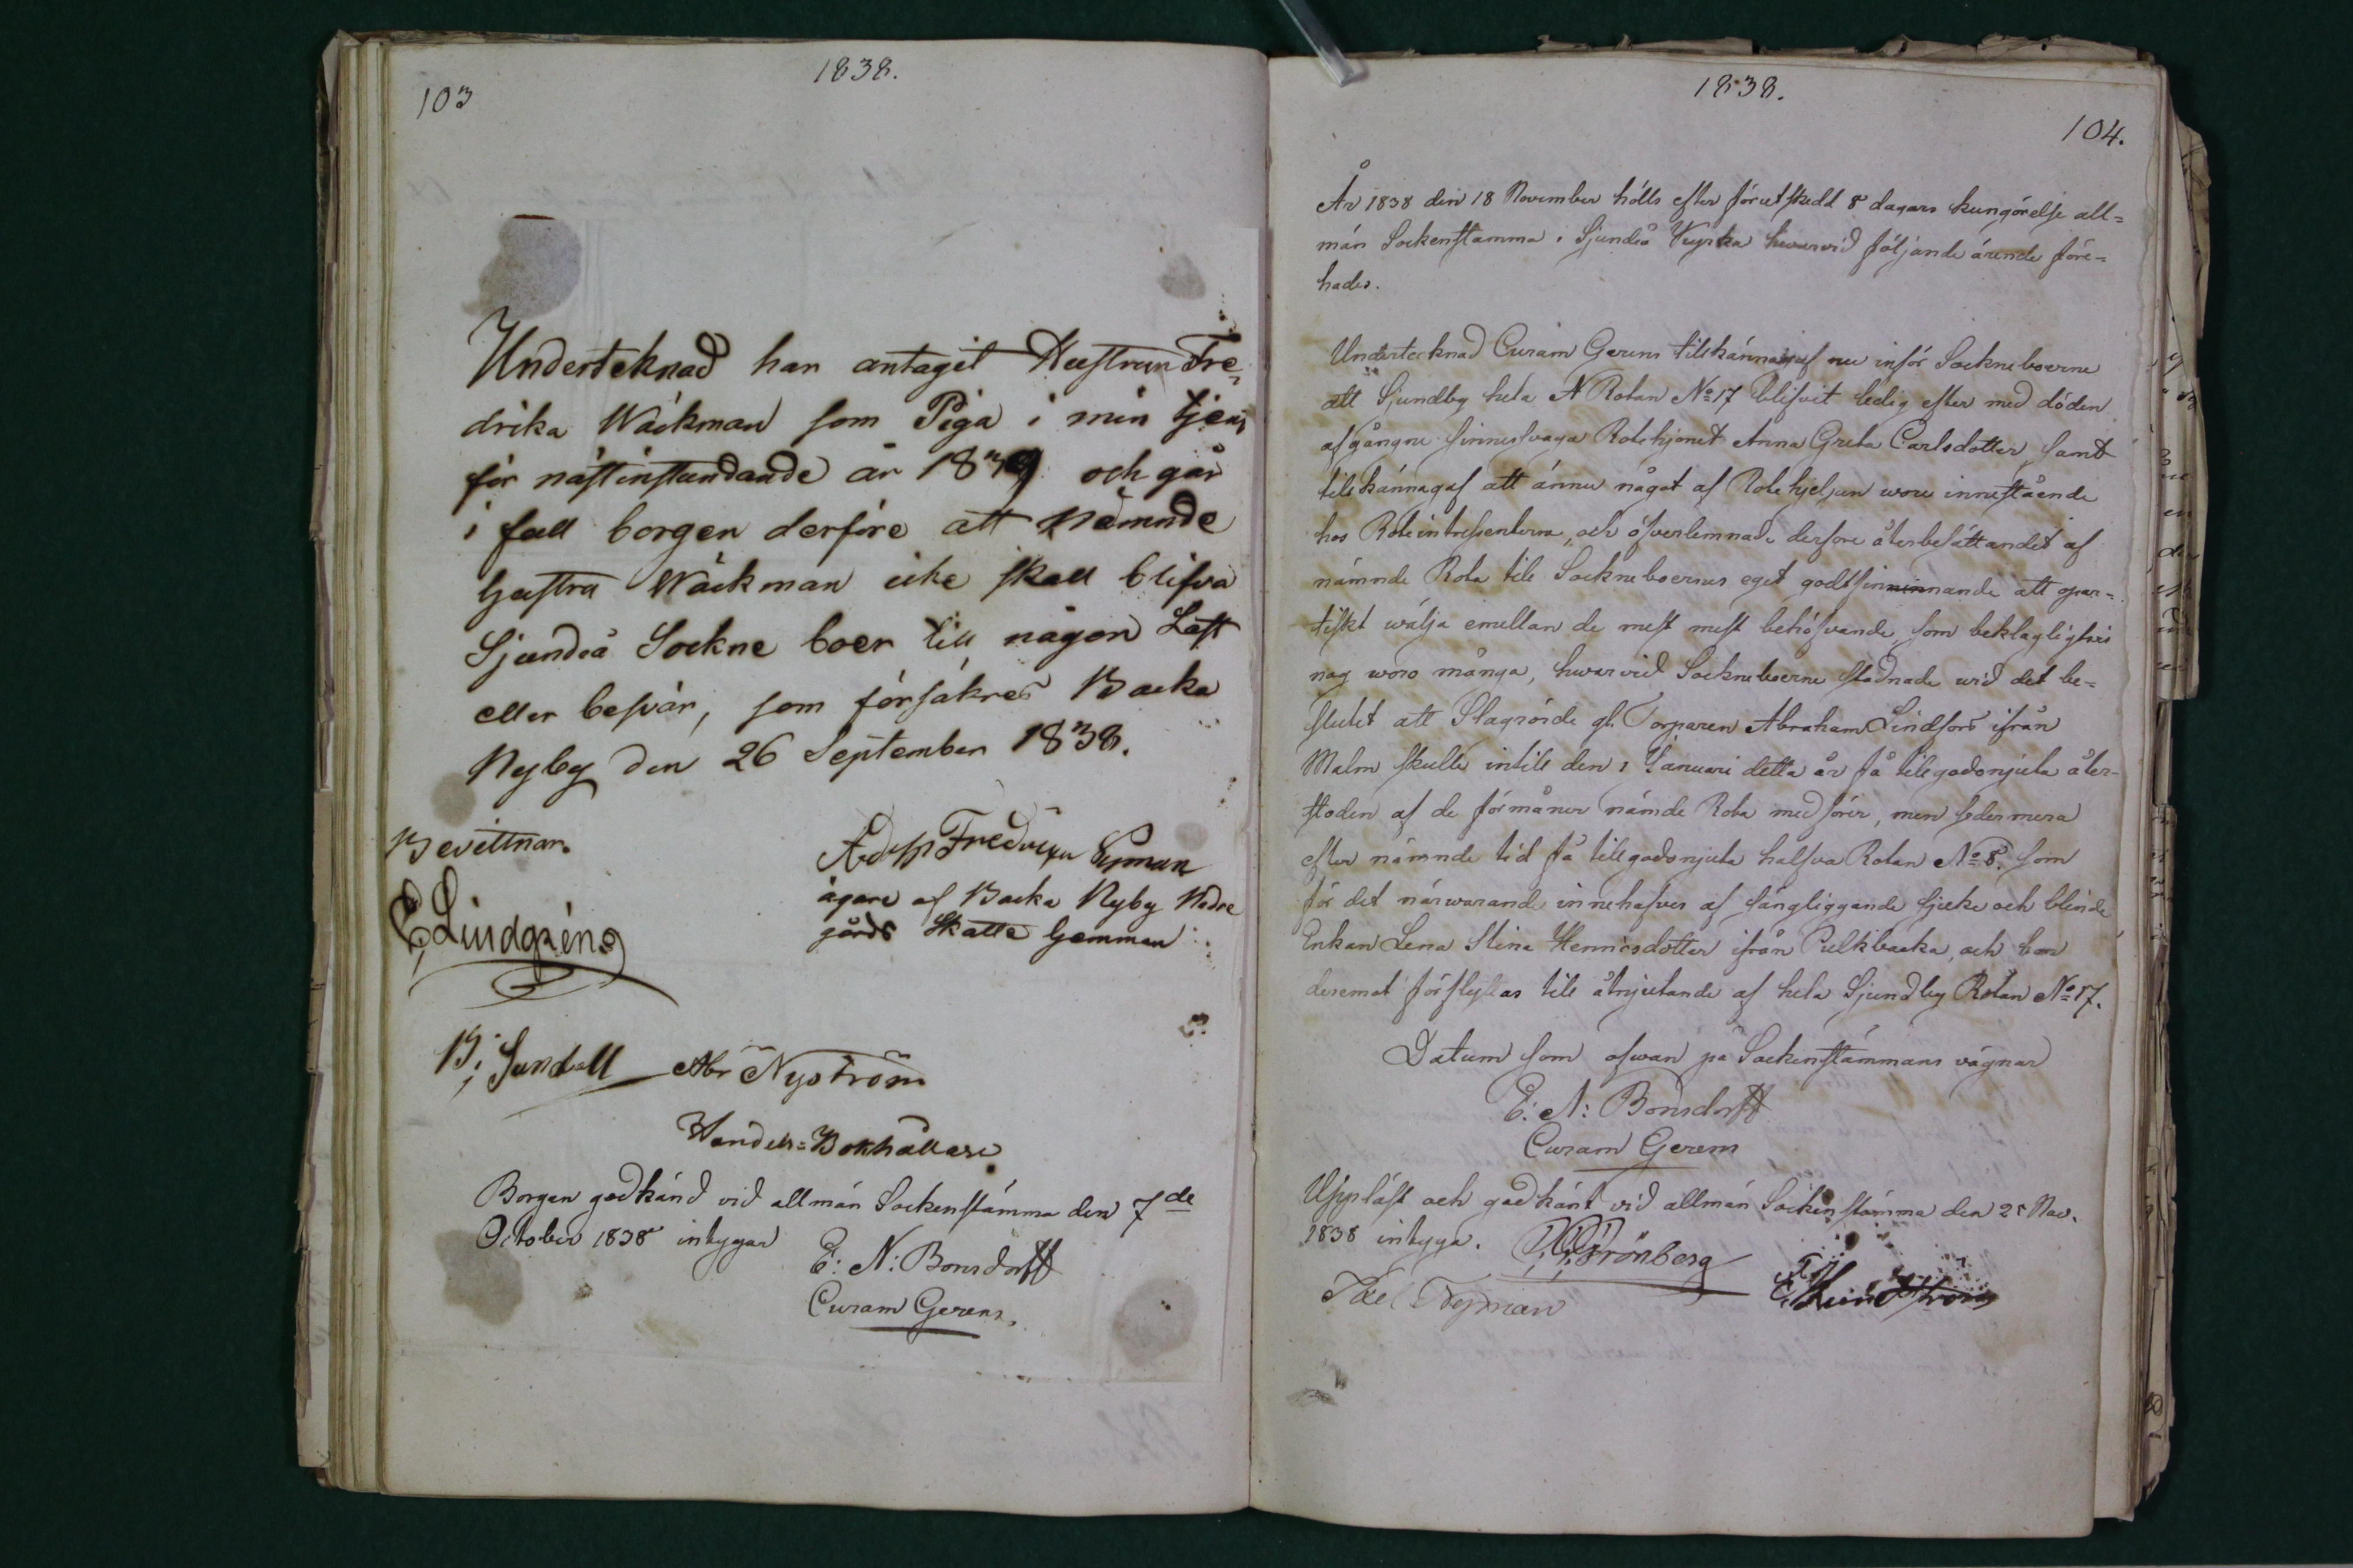 1838.
103
Underteknad har antagit Hustrun Fre-
drika Wäckman som Piga i min tjens
för nästinstundande år 1839 och går
i fall borgen derföre att nämnde
hustru Wäckman icke skall blifva
Sjundeå Sockne boer till någon Last
eller besvär, som försäkras Backa
Nyby den 26 September 1838.
Bevittnar.
Adolf Fredrik Nyman
ägare af Backa Nyby Nedre
gårds Skatte hemman
E, Lindgrén
B; Sundell Abr Nyström
Handels-Bokhållare
Borgen godkänd vid allmän Sockenstämma den 7de
October 1838 intygar
E: N: Bonsdorff
Curam Gerens.
1838.
104.
År 1838 den 18 November hölls efter förutskedd 8 dagars kungörelse all-
män Sockenstämma i Sjundeå Kyrka hwarvid följande ärende före-
hades.
Undertecknad Curam Gerens tilkännagaf nu inför Sockneboerne
att Sjundby hela Rotan No 17 blifvit ledig efter med döden
afgångne sinnessvaga Rotehjonet Anna Greta Carlsdotter, samt
tilkännagaf att ännu något af Rotehjelpen wore innestående
hos Roteintressenterna, och öfverlemnade derföre återbesättandet af
nämnde Rota till Sockneboernes eget godtfinninnande att opar-
tiskt wälja emellan de mest mest behöfvande, som beklagligtvis
nog woro många, hwarvid Sockneboerne stadnade wid det be-
slutet att Slagrörde gl. Torparen Abraham Lindfors ifrån
Malm skulle intill den 1 Januari detta år få tillgodonjuta åter-
stoden af de förmåner nämde Rota medförer, men sedermera
efter nämnde tid få tillgodonjuta halfva Rotan No 8. som
för det närwarande innehafves af sängliggande sjuka och blinda
Enkan Lena Stina Henricsdotter ifrån Pulkbacka, och bör
deremot förflyttas till åtnjutande af hela Sjundby Rotan No 17.
Datum som ofwan på Sockenstämmans vägnar
E: N: Bonsdorff
Curam Gerens
Uppläst och godkänt vid allmän Sockenstämma den 25 Nov.
1838 intyga. Grönberg
Nyman E, Lundström